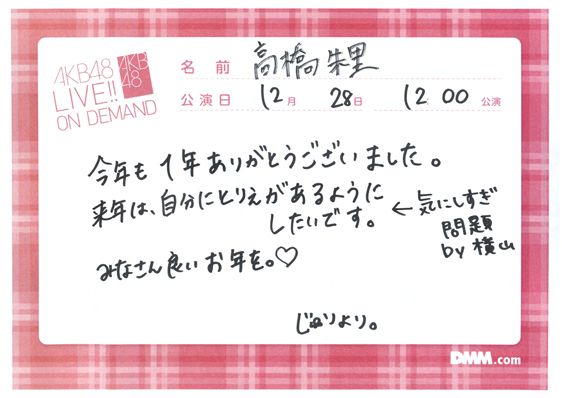 AKB48
LIVE!!
ON DEMAND
AKB
48
名前 高橋朱里
公演日 12月 28日 12:00 公演
今年も1年ありがとうございました。
来年は、自分にとりえがあるように
したいです。 ← 気にしすぎ
問題
by 横山
みなさん良いお年を。♡
じゅりより。
DMM.com